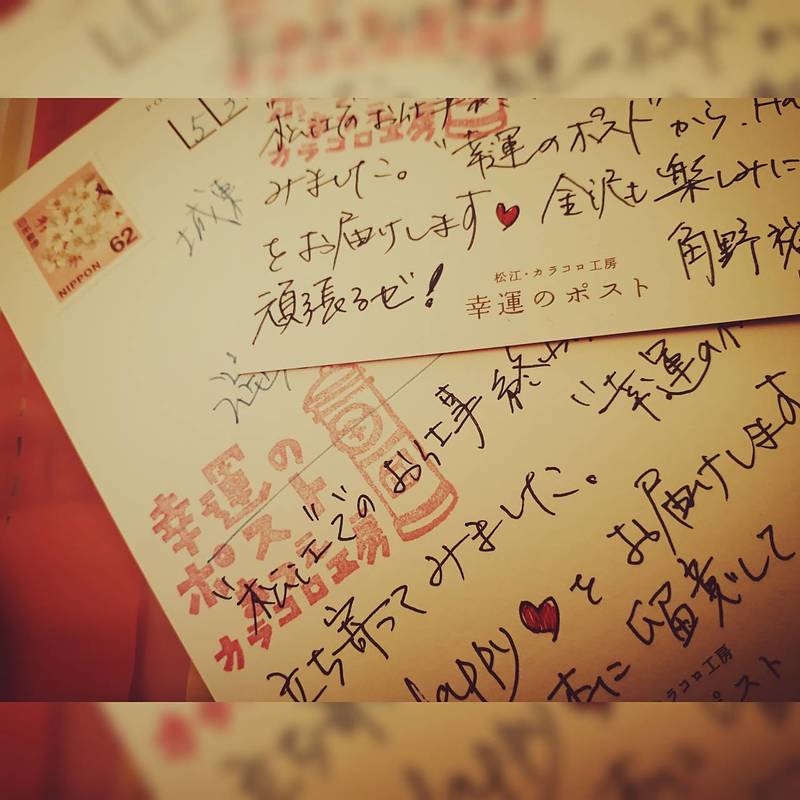 62
NIPPON
"松江でのお仕事
カラコロ工房
みました。"幸運のポスト"から、Ha
をお届けします♥ 金沢も楽しみに
頑張るぜ!
角野
松江・カラコロ工房
幸運のポスト
幸運の
ポスト
カラコロ工房
"松江"でのお仕事 終わ
立ち寄ってみました。
"幸運のポ
happy♥をお届けします
留意して
ラコロ工房
ポスト